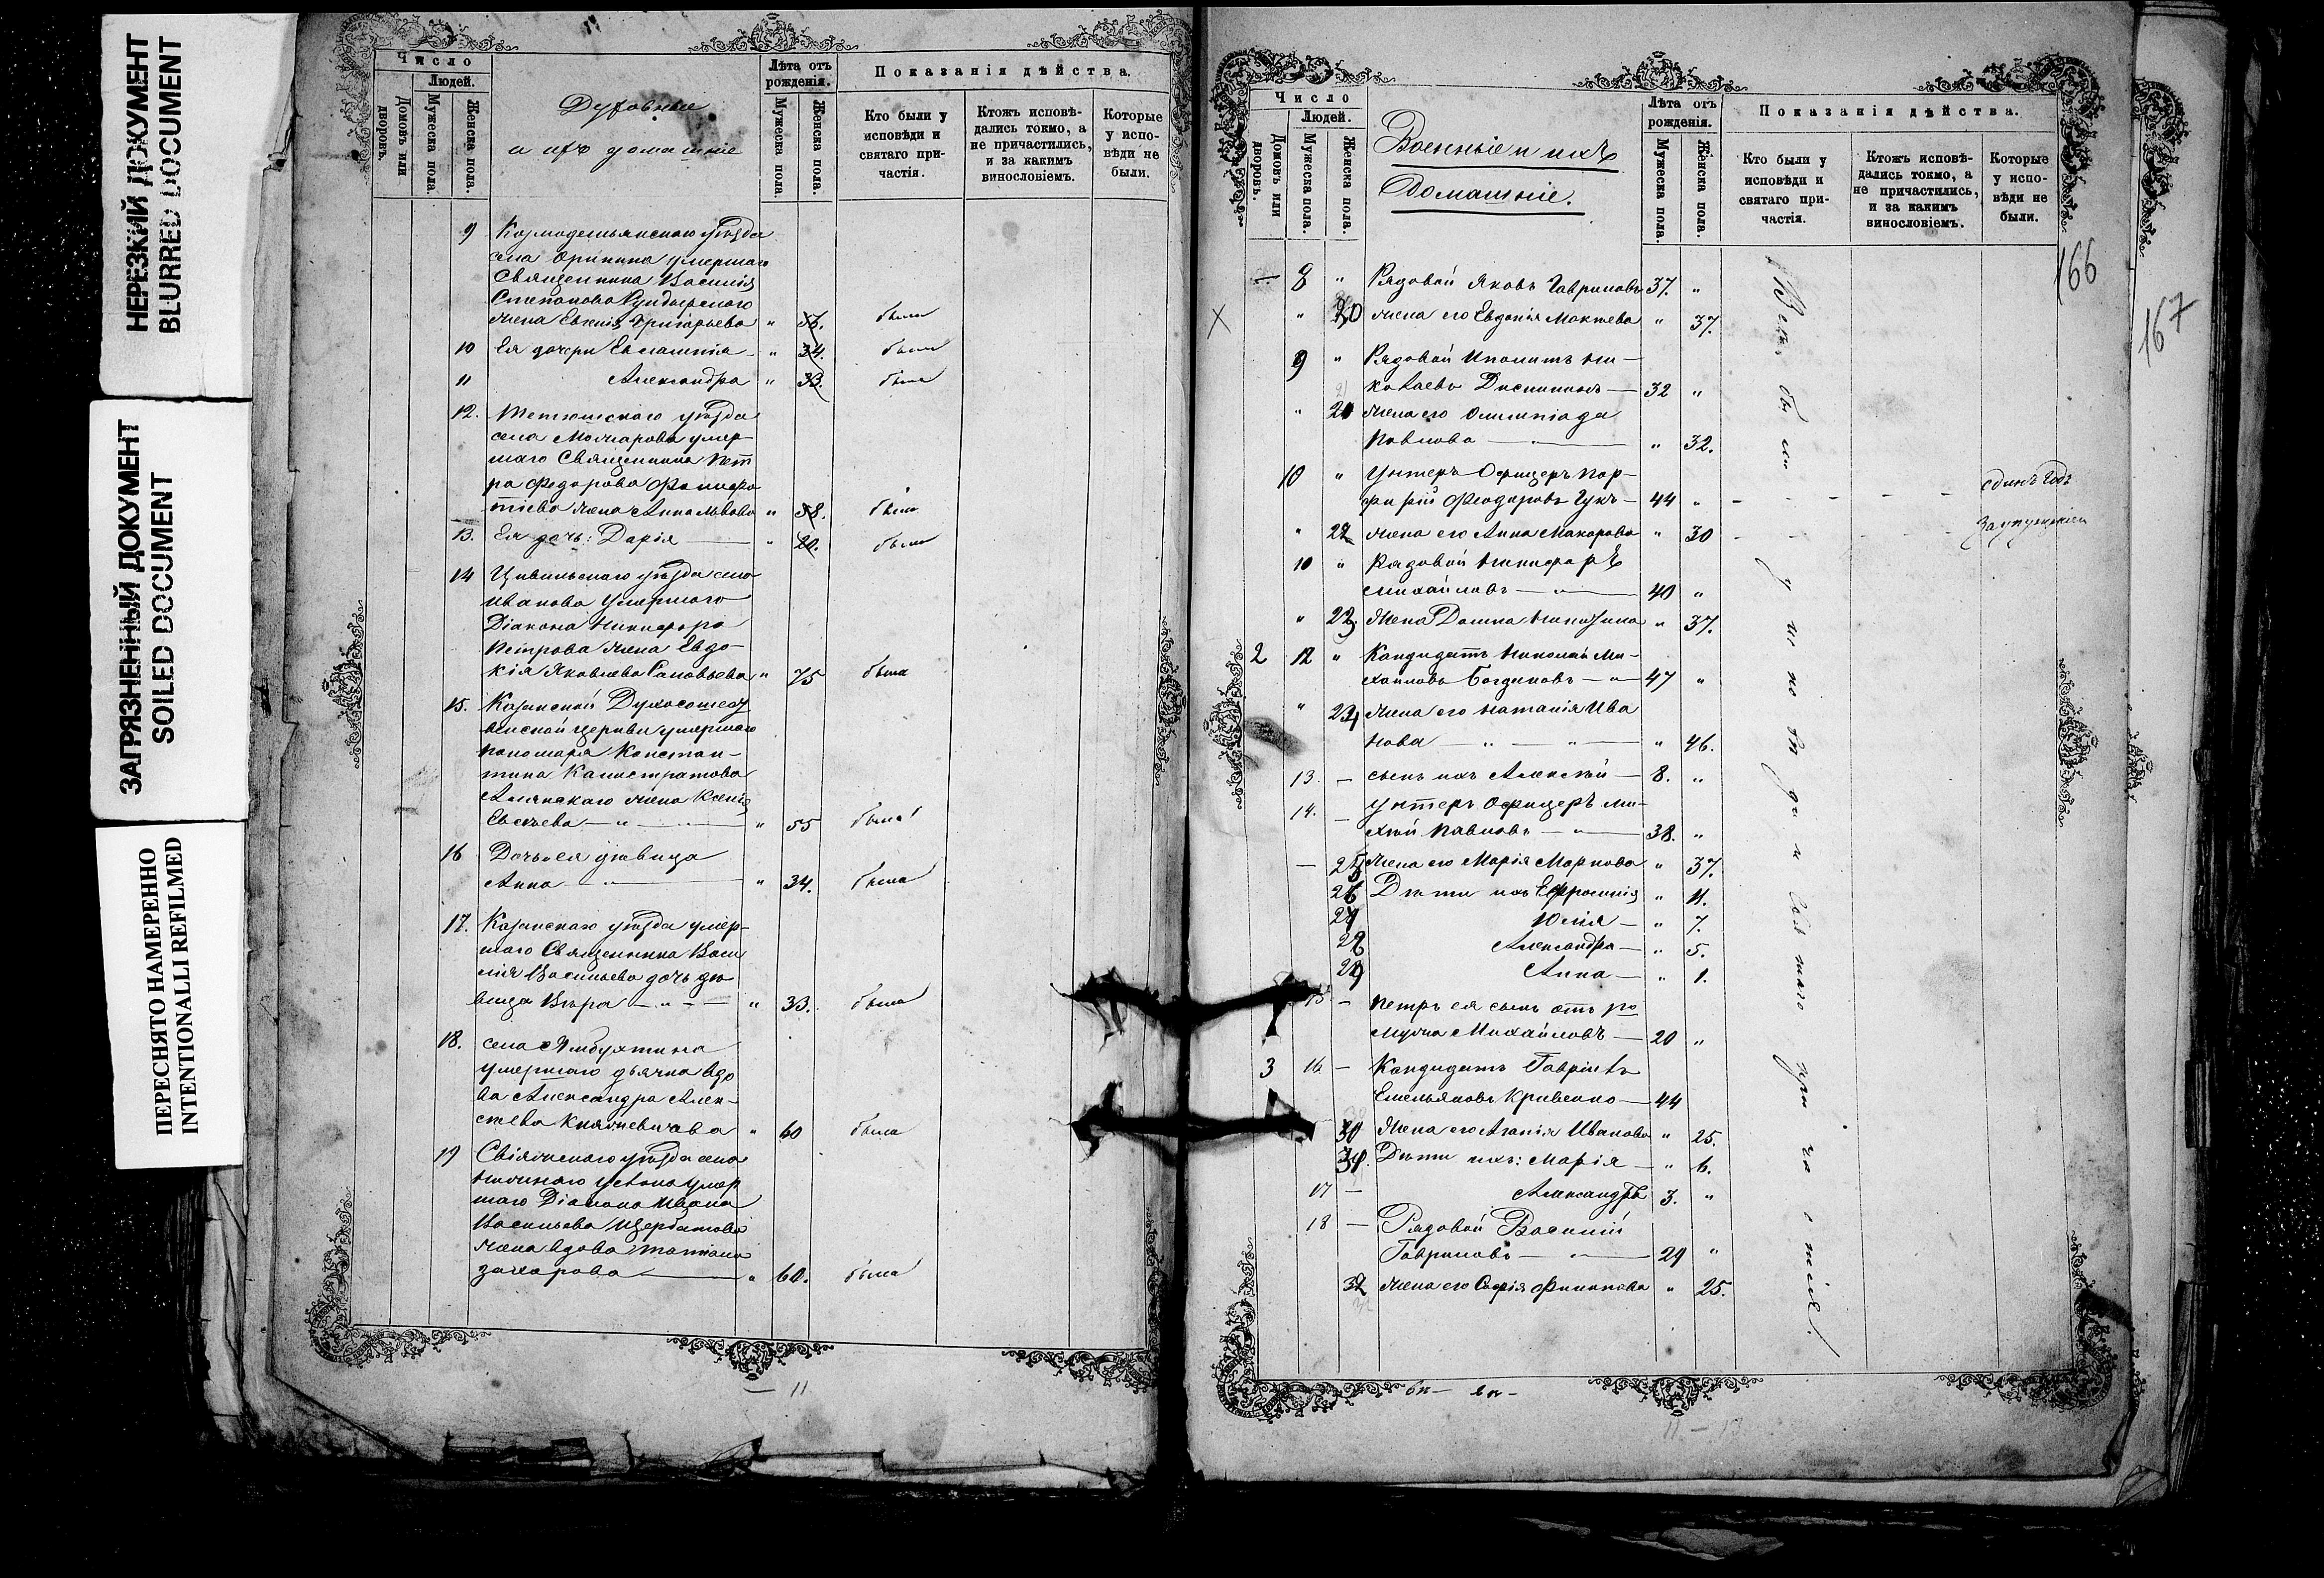 НЕРЕЗКИЙ ДОКУМЕНТ
BLURRED DOCUMENT
ЗАГРЯЗНЕННЫЙ ДОКУМЕНТ
SOILED DOCUMENT
ПЕРЕСНЯТО НАМЕРЕННО
INTENTIONALLI REFILMED
Число
Людей.
Домовъ или дворовъ.
Мужеска пола.
Женска пола.
Духовные
и ихъ домашніе
Лѣта отъ рожденія.
Мужеска пола
Женска пола.
Показанія дѣйства.
Кто были у исповѣди и святаго причастія.
Ктожъ исповѣдались токмо, а не причастились, и за какимъ винословіемъ.
Которые у исповѣди не были.
9 Козмодемьянскаго уѣзда
села Оринина умершаго
Священника Василія
Степанова
жена Евгенія Григорьева "
была
10 Ея дочери Евлампія " 34. была
11 Александра " 33. была
12. Тетюшскаго уѣзда
села Молчарова умер-
шаго Священника Пет
ра Федорова
жена Анна Львова " 58. была
13. Ея дочь: Дарія " 20. была
14 Цивильскаго уѣзда села
Иванова умершаго
Діакона Никифора
Петрова жена Евдо-
кія Яковлева Соловьева " 75 была
15. Казанской
церкви умершаго
пономаря Констан-
тина Калистратова
жена Ксенія
Евсеева " 55 была
16 Дочь ея дѣвица
Анна " 34. была
17. Казанскаго уѣзда умер-
шаго Священника Васи
лія Васильева дочь дѣ
вица Вѣра " 33. была
18. села
умершаго дьячка вдо
ва Александра Алек-
сѣева " 60 была
19 Свіяжскаго уѣзда села
Нижняго Услона умер
шаго Діакона Ивана
Васильева Щербатова
жена вдова Татіана
Захарова " 60. была
— 11
Число
Людей.
Домовъ или дворовъ.
Мужеска пола.
Женска пола.
Военные и ихъ
Домашніе.
Лѣта отъ рожденія.
Мужеска пола.
Женска пола.
Показанія дѣйства.
Кто были у исповѣди и святаго причастія.
Ктожъ исповѣдались токмо, а не причастились, и за какимъ винословіемъ.
Которые у исповѣди не были.
166
167
8 " Рядовой Яковъ Гавриловъ 37. "
X " 20 жена его Евдокія Мокіева " 37.
9 " Рядовой Иполитъ Ни-
колаевъ 32 "
" 21 жена его Олимпіада
Павлова " 32.
10 " Унтеръ Офицеръ Пор-
фирій Феодоровъ Чукъ 44 "
" 22 жена его Анна Макарова " 30
единъ годъ
за упущеніемъ
10 " Рядовой Никифоръ
Михайловъ 40 "
" 23. Жена Домна " 37.
2 12 " Кандидатъ Николай Ми-
хайловъ Богдановъ 47 "
" 24 жена его Наталія Ива
нова " 46.
13. — сынъ ихъ Алексѣй 8. "
14. — Унтеръ Офицеръ Ми-
хей Павловъ 38. "
— 25 жена его Марія Маркова " 37.
26 Дѣти ихъ Ефросинія " 11.
27 Юлія " 7.
28 Александра " 5.
29 Анна " 1.
15 — Петръ ея сынъ отъ 1го
мужа Михайловъ 20 "
3 16 — Кандидатъ Гавріилъ
Емельяновъ Кривенко 44
30 Жена его Агапія Иванова " 25.
31. Дѣти ихъ: Марія " 6.
17 — Александръ 3. "
18 — Рядовой Василій
Гавриловъ 29 "
32 жена его Софія Филипова " 25.
Всѣ были у исповѣди и святаго причастія.
11 — 13